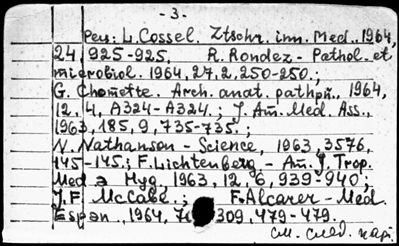 - 3.
Рец: L. Cossel. Ztschr. inn. Med., 1964,
24, 925-925. R. Rondez - Pathol. et
microbiol. 1964, 27, 2, 250-250.;
G. Chomette. Arch. anat. path., 1964,
12, 4, A324-A324.; J. Am. Med. Ass.,
1963, 185, 9, 735-735.;
N. Nathanson - Science, 1963, 3576,
145-145.; F. Lichtenberg - Am. J. Trop.
Med a Hyg, 1963, 12, 6, 939-940;
J.F. McCabe.; F. Alcarer - Med.
Espan., 1964, 309, 479-479.
См. след. карт.